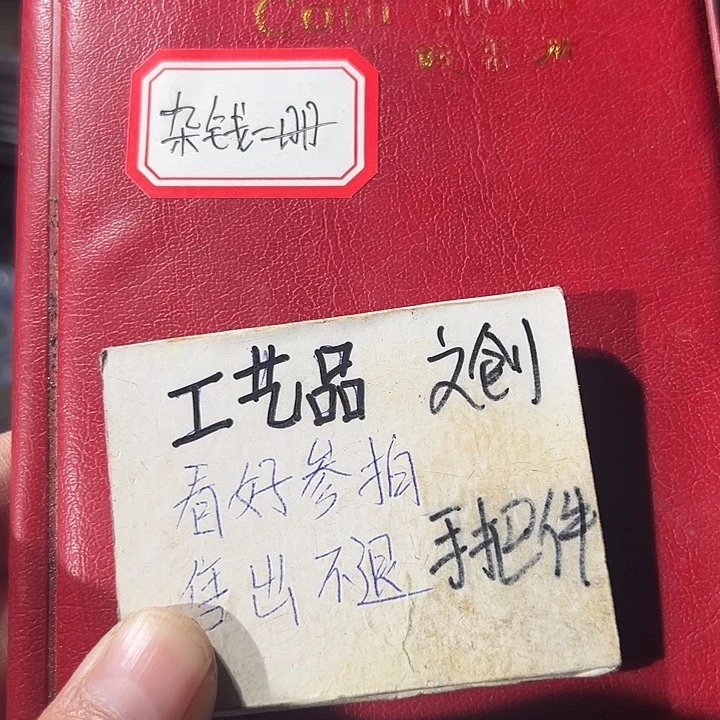 Coin Stock
杂钱二册
工艺品 文创
看好参拍
售出不退 手把件